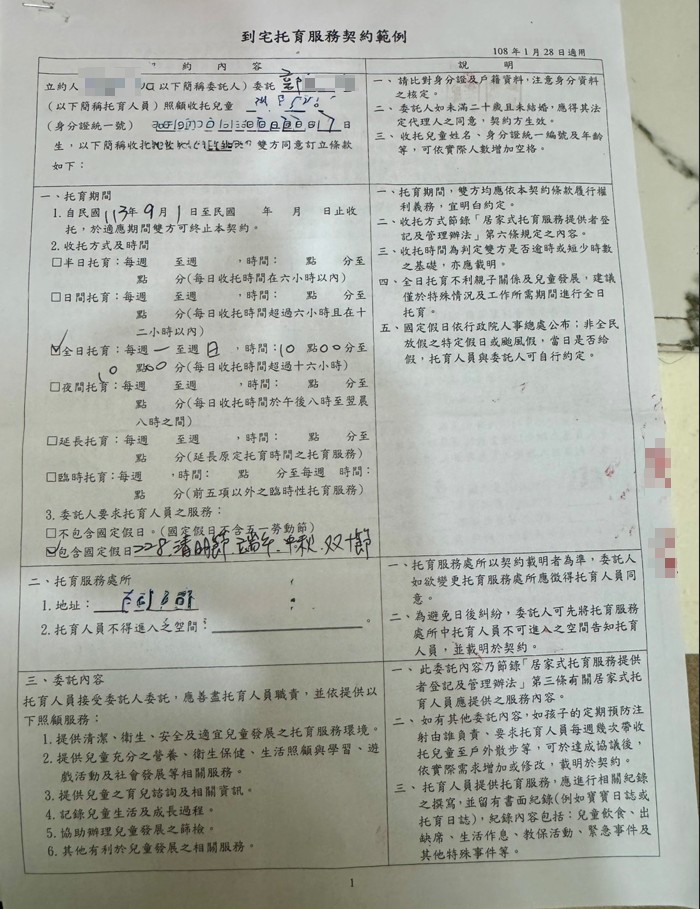 到宅托育服務契約範例
108 年 1 月 28 日適用
約 內 容
說 明
立約人
以下簡稱委託人）委託
（以下簡稱托育人員）照顧收托兒童
（身分證統一號）
日
生，以下簡稱收托
雙方同意訂立條款
如下：
一、請比對身分證及戶籍資料，注意身分資料
之核定。
二、委託人如未滿二十歲且未結婚，應得其法
定代理人之同意，契約方生效。
三、收托兒童姓名、身分證統一編號及年齡
等，可依實際人數增加空格。
一、托育期間
1. 自民國 113年 9月 1 日至民國 年 月 日止收
托，於適應期間雙方可終止本契約。
2. 收托方式及時間
□半日托育：每週 至週 ，時間： 點 分至
點 分(每日收托時間在六小時以內)
□日間托育：每週 至週 ，時間： 點 分至
點 分(每日收托時間超過六小時且在十
二小時以內)
☑全日托育：每週一至週日，時間：10 點00分至
10 點00 分(每日收托時間超過十六小時)
□夜間托育：每週 至週 ，時間： 點 分至
點 分(每日收托時間於午後八時至翌晨
八時之間)
□延長托育：每週 至週 ，時間： 點 分至
點 分(延長原定托育時間之托育服務)
□臨時托育：每週 ，時間： 點 分至每週 時間：
點 分(前五項以外之臨時性托育服務)
3. 委託人要求托育人員之服務：
□不包含國定假日。(國定假日不含五一勞動節)
☑包含國定假日228.清明節.端午.中秋.双十節
一、托育期間，雙方均應依本契約條款履行權
利義務，宜明白約定。
二、收托方式節錄「居家式托育服務提供者登
記及管理辦法」第六條規定之內容。
三、收托時間為判定雙方是否逾時或短少時數
之基礎，亦應載明。
四、全日托育不利親子關係及兒童發展，建議
僅於特殊情況及工作所需期間進行全日
托育。
五、國定假日依行政院人事總處公布；非全民
放假之特定假日或颱風假，當日是否給
假，托育人員與委託人可自行約定。
二、托育服務處所
1. 地址：
2. 托育人員不得進入之空間： 。
一、托育服務處所以契約載明者為準，委託人
如欲變更托育服務處所應徵得托育人員同
意。
二、為避免日後糾紛，委託人可先將托育服務
處所中托育人員不可進入之空間告知托育
人員，並載明於契約。
三、委託內容
托育人員接受委託人委託，應善盡托育人員職責，並依提供以
下照顧服務：
1. 提供清潔、衛生、安全及適宜兒童發展之托育服務環境。
2. 提供兒童充分之營養、衛生保健、生活照顧與學習、遊
戲活動及社會發展等相關服務。
3. 提供兒童之育兒諮詢及相關資訊。
4. 記錄兒童生活及成長過程。
5. 協助辦理兒童發展之篩檢。
6. 其他有利於兒童發展之相關服務。
一、此委託內容乃節錄「居家式托育服務提供
者登記及管理辦法」第三條有關居家式托
育人員應提供之服務內容。
二、如有其他委託內容，如孩子的定期預防注
射由誰負責、要求托育人員每週幾次帶收
托兒童至戶外散步等，可於達成協議後，
依實際需求增加或修改，載明於契約。
三、托育人員提供托育服務，應進行相關紀錄
之撰寫，並留有書面紀錄(例如寶寶日誌或
托育日誌)，紀錄內容包括：兒童飲食、出
缺席、生活作息、教保活動、緊急事件及
其他特殊事件等。
1